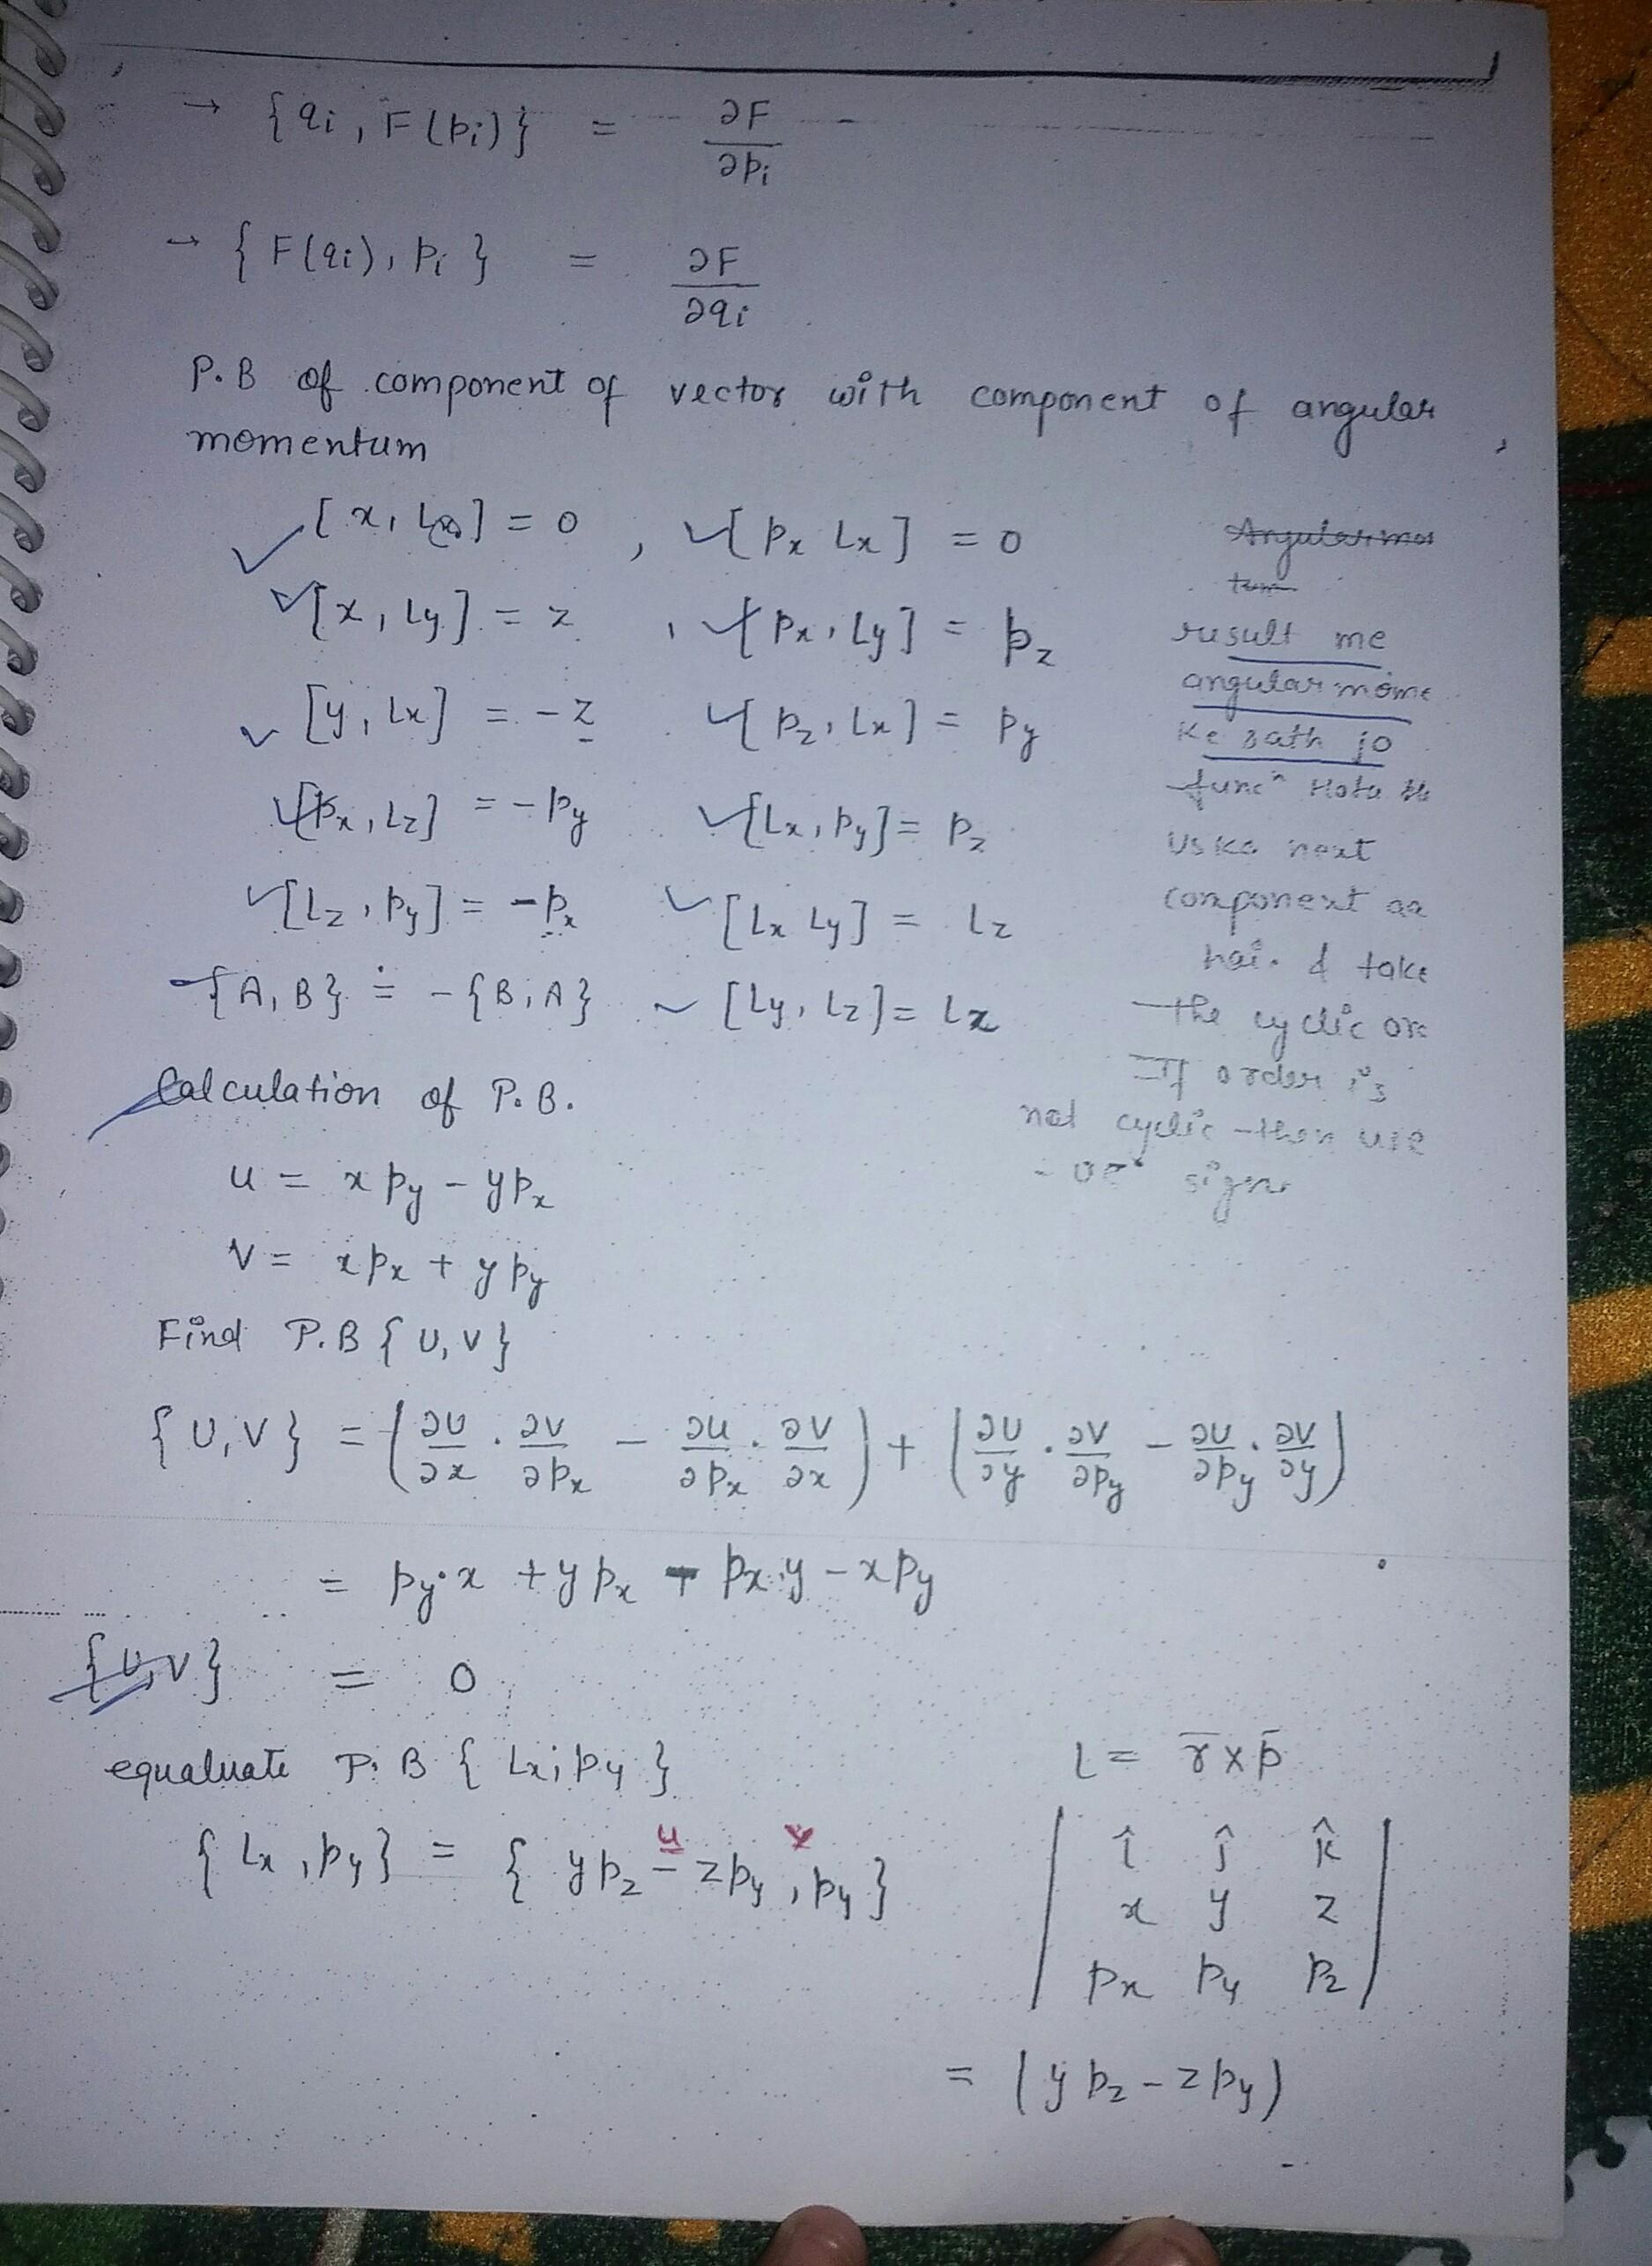 → {qi, F(pi)} = ∂F/∂pi
→ {F(qi), pi} = ∂F/∂qi
P.B of component of vector with component of angular
momentum
[x, Lx] = 0 , [px Lx] = 0
[x, Ly] = z , [px, Ly] = pz
[y, Lx] = -z [pz, Lx] = py
[px, Lz] = -py [Lx, py] = pz
[Lz, py] = -px [Lx Ly] = Lz
{A, B} = -{B, A} [Ly, Lz] = Lx
result me
angular mome
ke sath jo
funcⁿ Hota
uska next
component aa
hai. & take
the cyclic or
If order is
not cyclic then use
-ve sign
Calculation of P.B.
u = x py - y px
v = x px + y py
Find P.B {U, V}
{U, V} = (∂U/∂x · ∂V/∂px - ∂U/∂px · ∂V/∂x) + (∂U/∂y · ∂V/∂py - ∂U/∂py · ∂V/∂y)
= py·x + y px - px·y - x py
{U, V} = 0
equaluate P.B { Lx, py }
{ Lx, py } = { y pz - z py, py }
u v
L = r̄ × p̄
| î ĵ k̂ |
| x y z |
| px py pz |
= (y pz - z py)